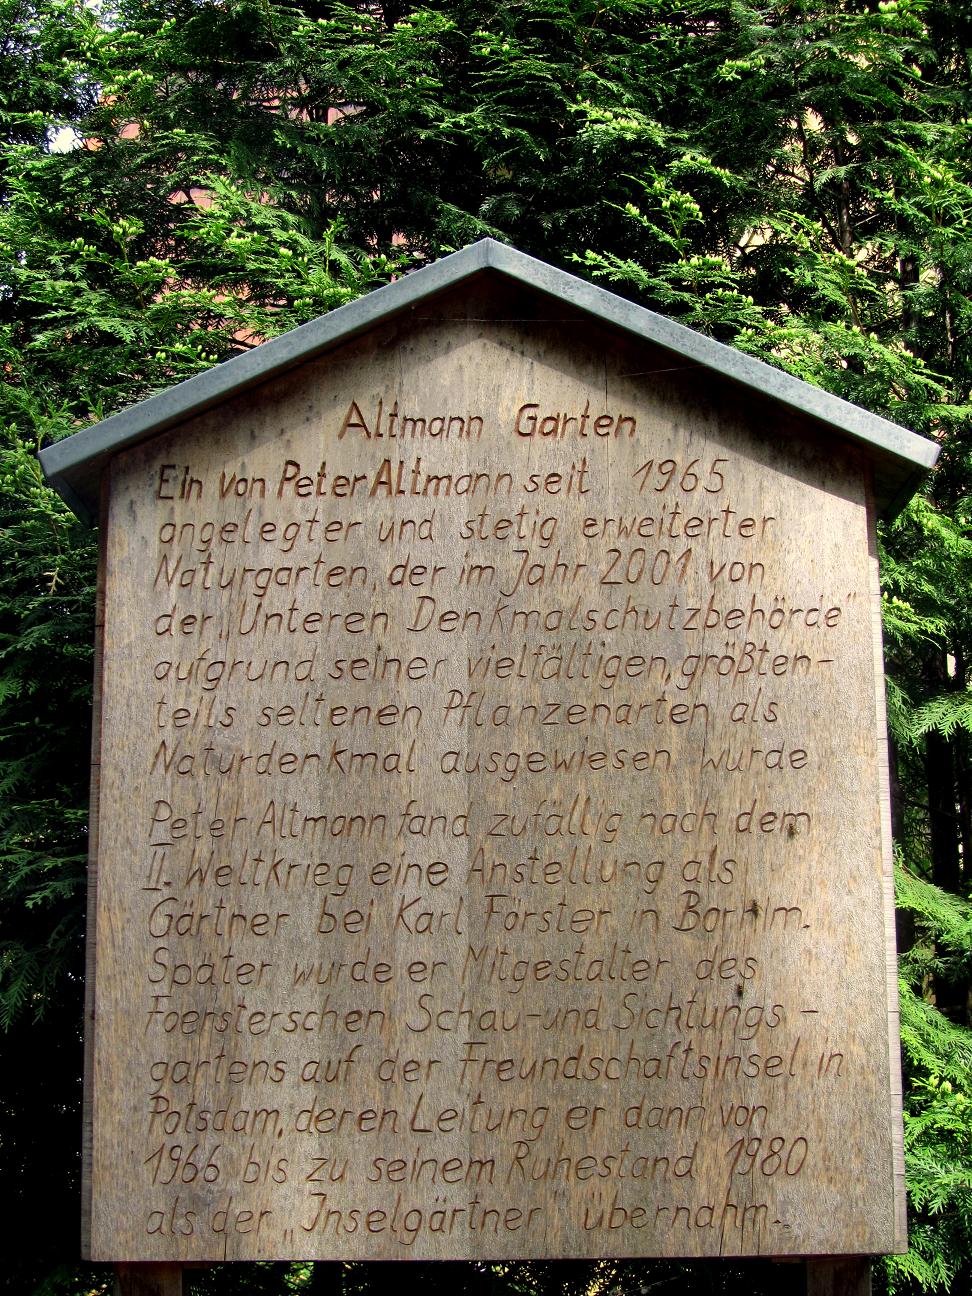 Altmann Garten
Ein von Peter Altmann seit 1965
angelegter und stetig erweiterter
Naturgarten, der im Jahr 2001 von
der „Unteren Denkmalschutzbehörde"
aufgrund seiner vielfältigen, größten-
teils seltenen Pflanzenarten als
Naturdenkmal ausgewiesen wurde
Peter Altmann fand zufällig nach dem
II. Weltkrieg eine Anstellung als
Gärtner bei Karl Förster in Bornim.
Später wurde er Mitgestalter des
Foersterschen Schau- und Sichtungs-
gartens auf der Freundschaftsinsel in
Potsdam, deren Leitung er dann von
1966 bis zu seinem Ruhestand 1980
als der „Inselgärtner" übernahm.